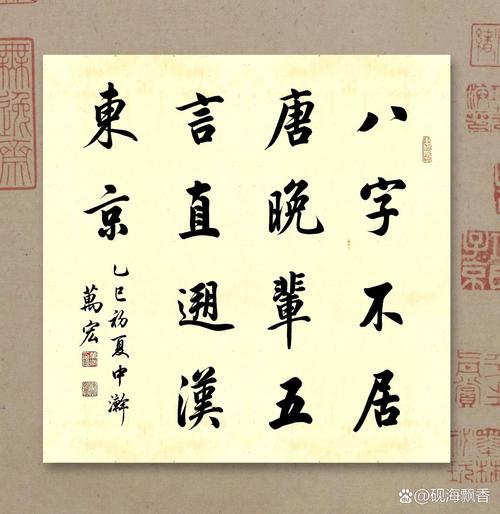 八字不居
唐晚輩五
言直遡漢
東京
乙巳初夏中澣
萬宏
無逸齋
砚海飘香